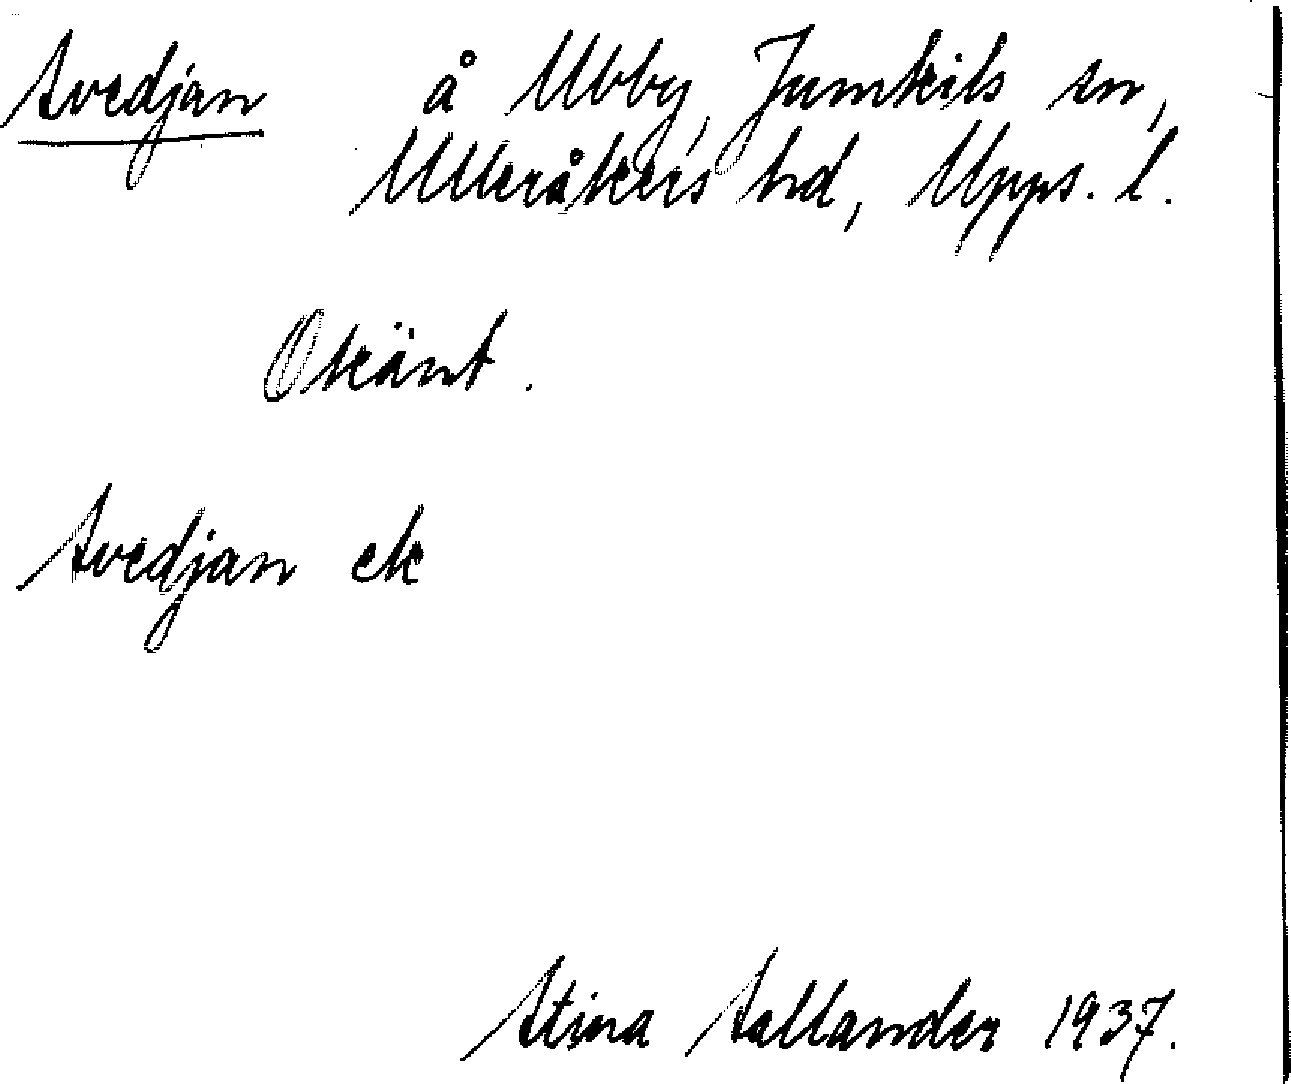 Svedjan å Ubby, Jumkils sn,
Ulleråkers hd, Upps. l.
Okänt.
Svedjan ek
Stina Sallander 1937.